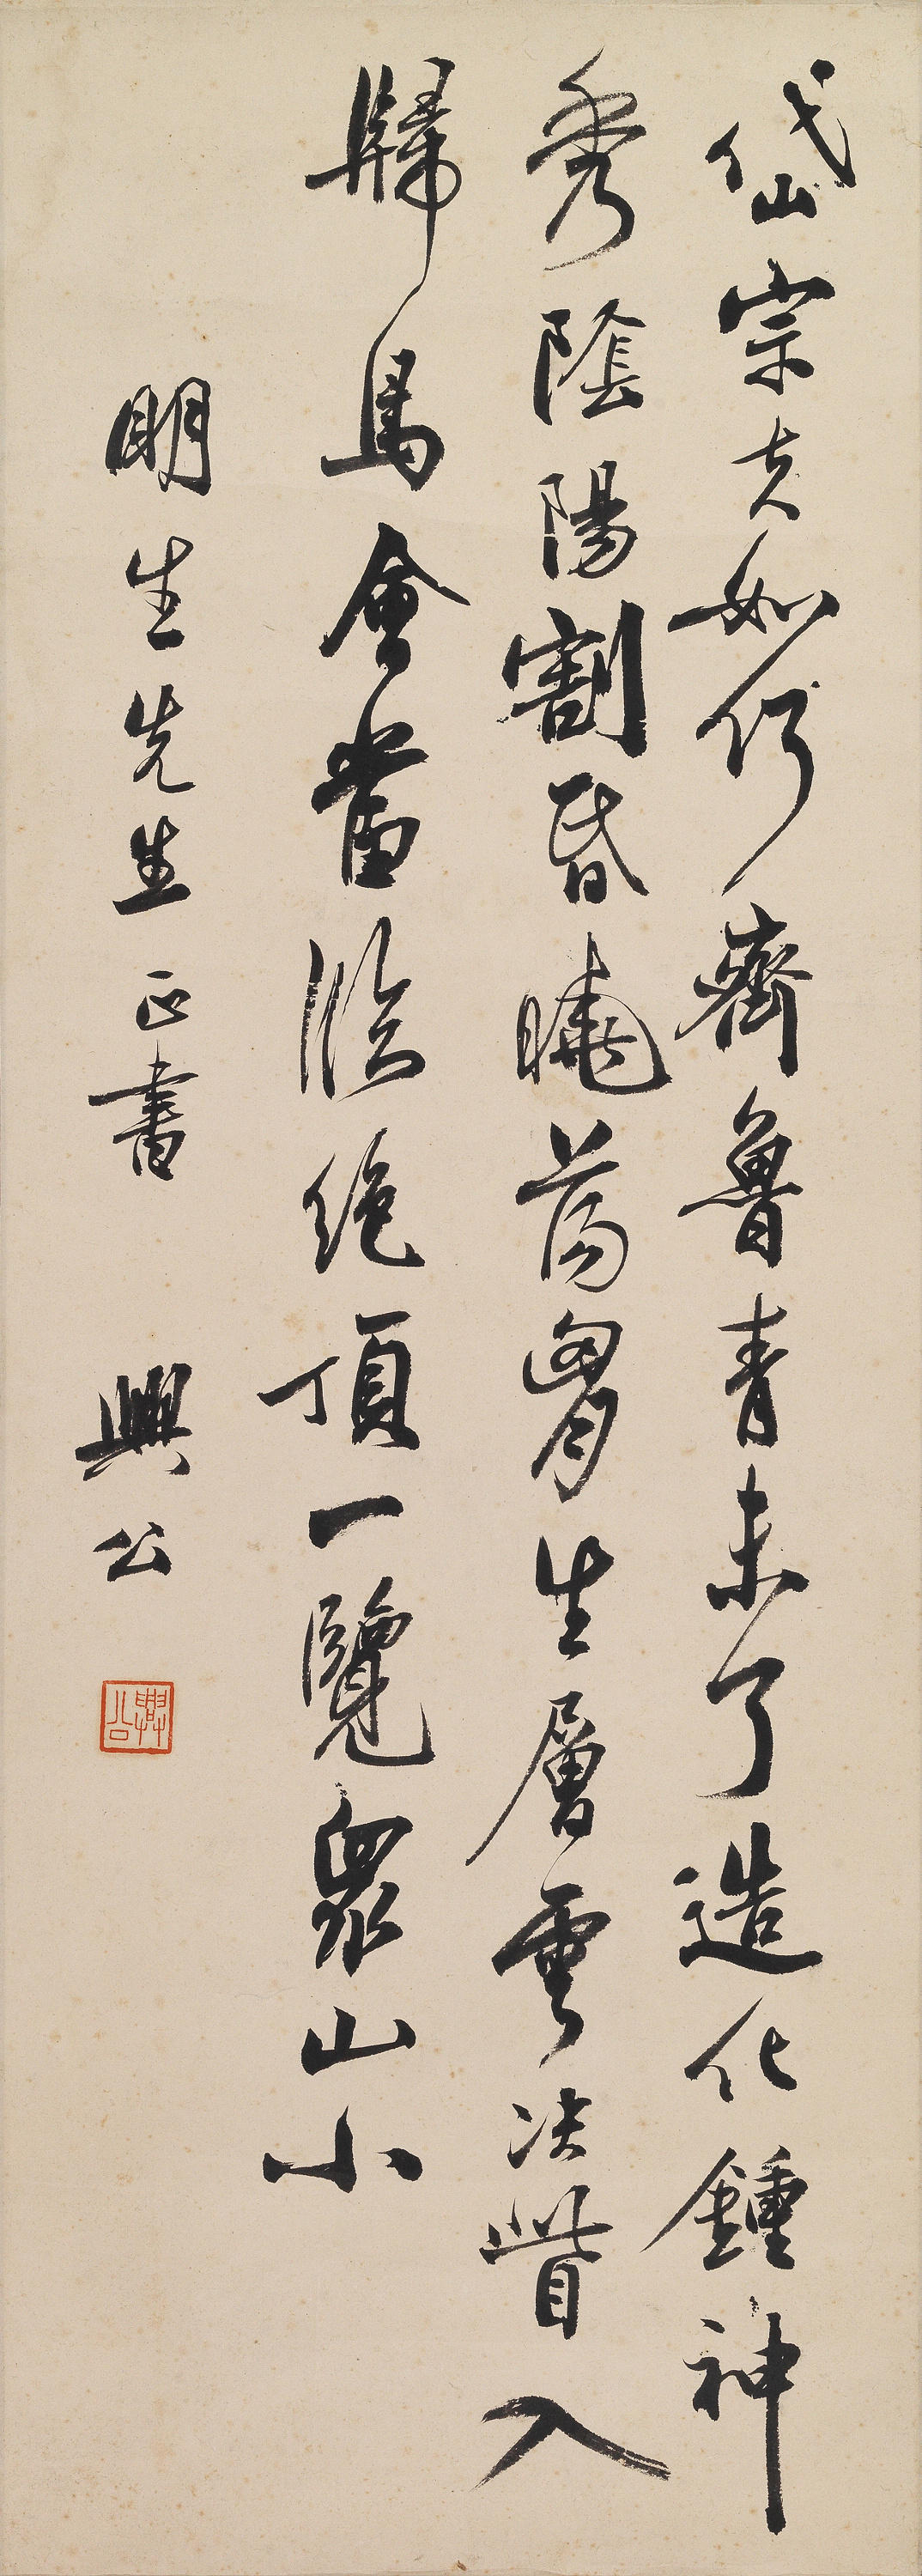 岱宗夫如何齊魯青未了造化鍾神
秀陰陽割昏曉蕩胷生層雲决眥入
歸鳥會當臨絕頂一覽衆山小
明生先生正書 興公
興公